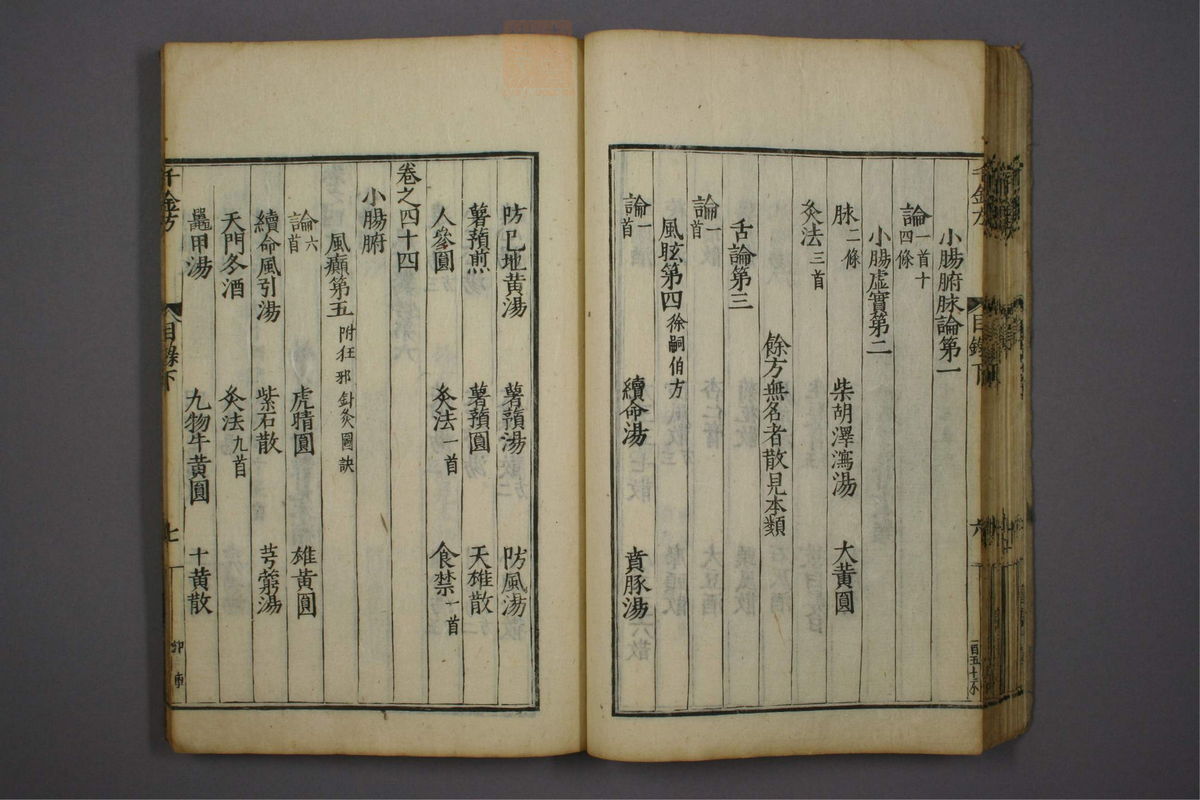 小腸腑脉論第一
論一首十四條
小腸虛實第二
脉二條 柴胡澤瀉湯 大黃圓
灸法三首
餘方無名者散見本類
舌論第三
論一首
風眩第四徐嗣伯方
論一首 續命湯 賁豚湯
防巳地黃湯 薯蕷湯 防風湯
薯蕷煎 薯蕷圓 天雄散
人參圓 灸法一首 食禁一首
卷之四十四
小腸腑
風癲第五附狂邪針灸圖訣
論六首 虎睛圓 雄黃圓
續命風引湯 紫石散 芎藭湯
天門冬酒 灸法九首
鼉甲湯 九物牛黃圓 十黃散
千金方 目錄下 七
千金方 目錄下 六